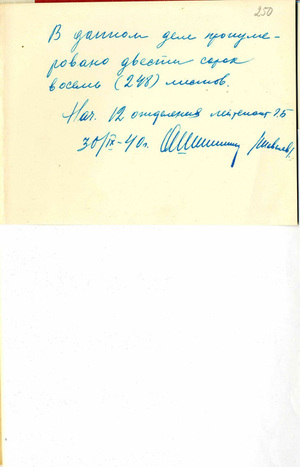 250
В данном деле пронуме-
ровано двести сорок
восемь (248) листов.
Нач. 12 отделения лейтенант Г.Б
30/IX-40г.